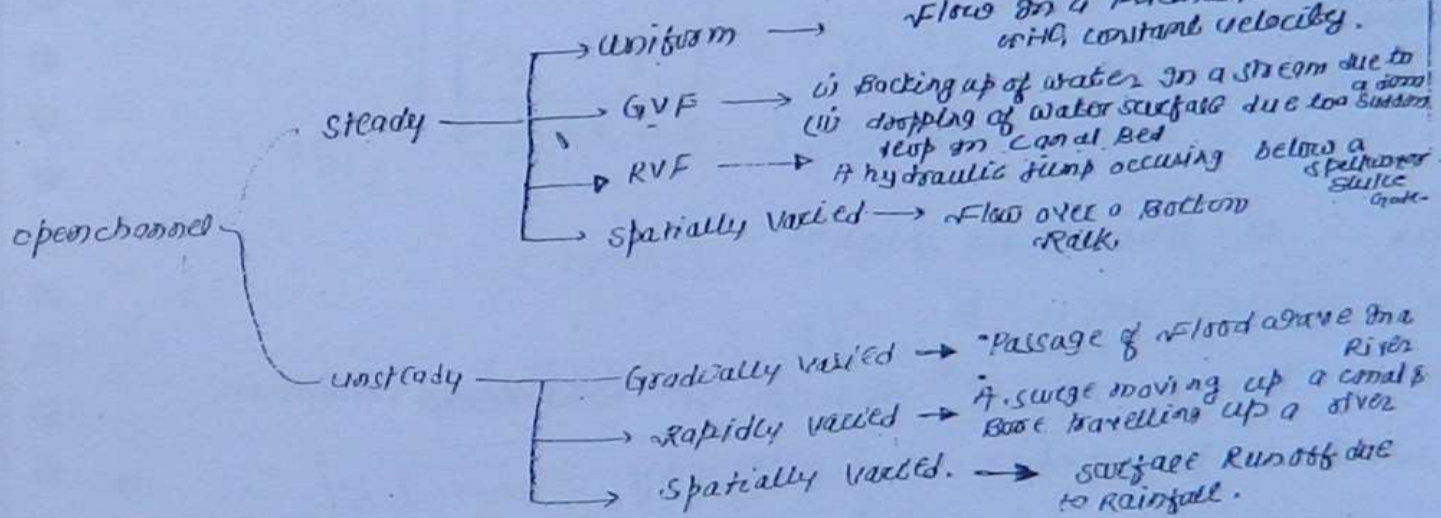 Flow in a
uniform → with constant velocity.
GVF → (i) Backing up of water in a stream due to a dam!
(ii) dropping of water surface due to a sudden
drop in canal Bed
steady
RVF → A hydraulic jump occuring below a
spillway or
Sluice
Gate-
Spatially varied → Flow over a Bottom
Rack
open channel
unsteady
Gradually varied → Passage of Flood wave in a
River
Rapidly varied → A surge moving up a canal &
Bore travelling up a river
Spatially varied. → surface Runoff due
to Rainfall.